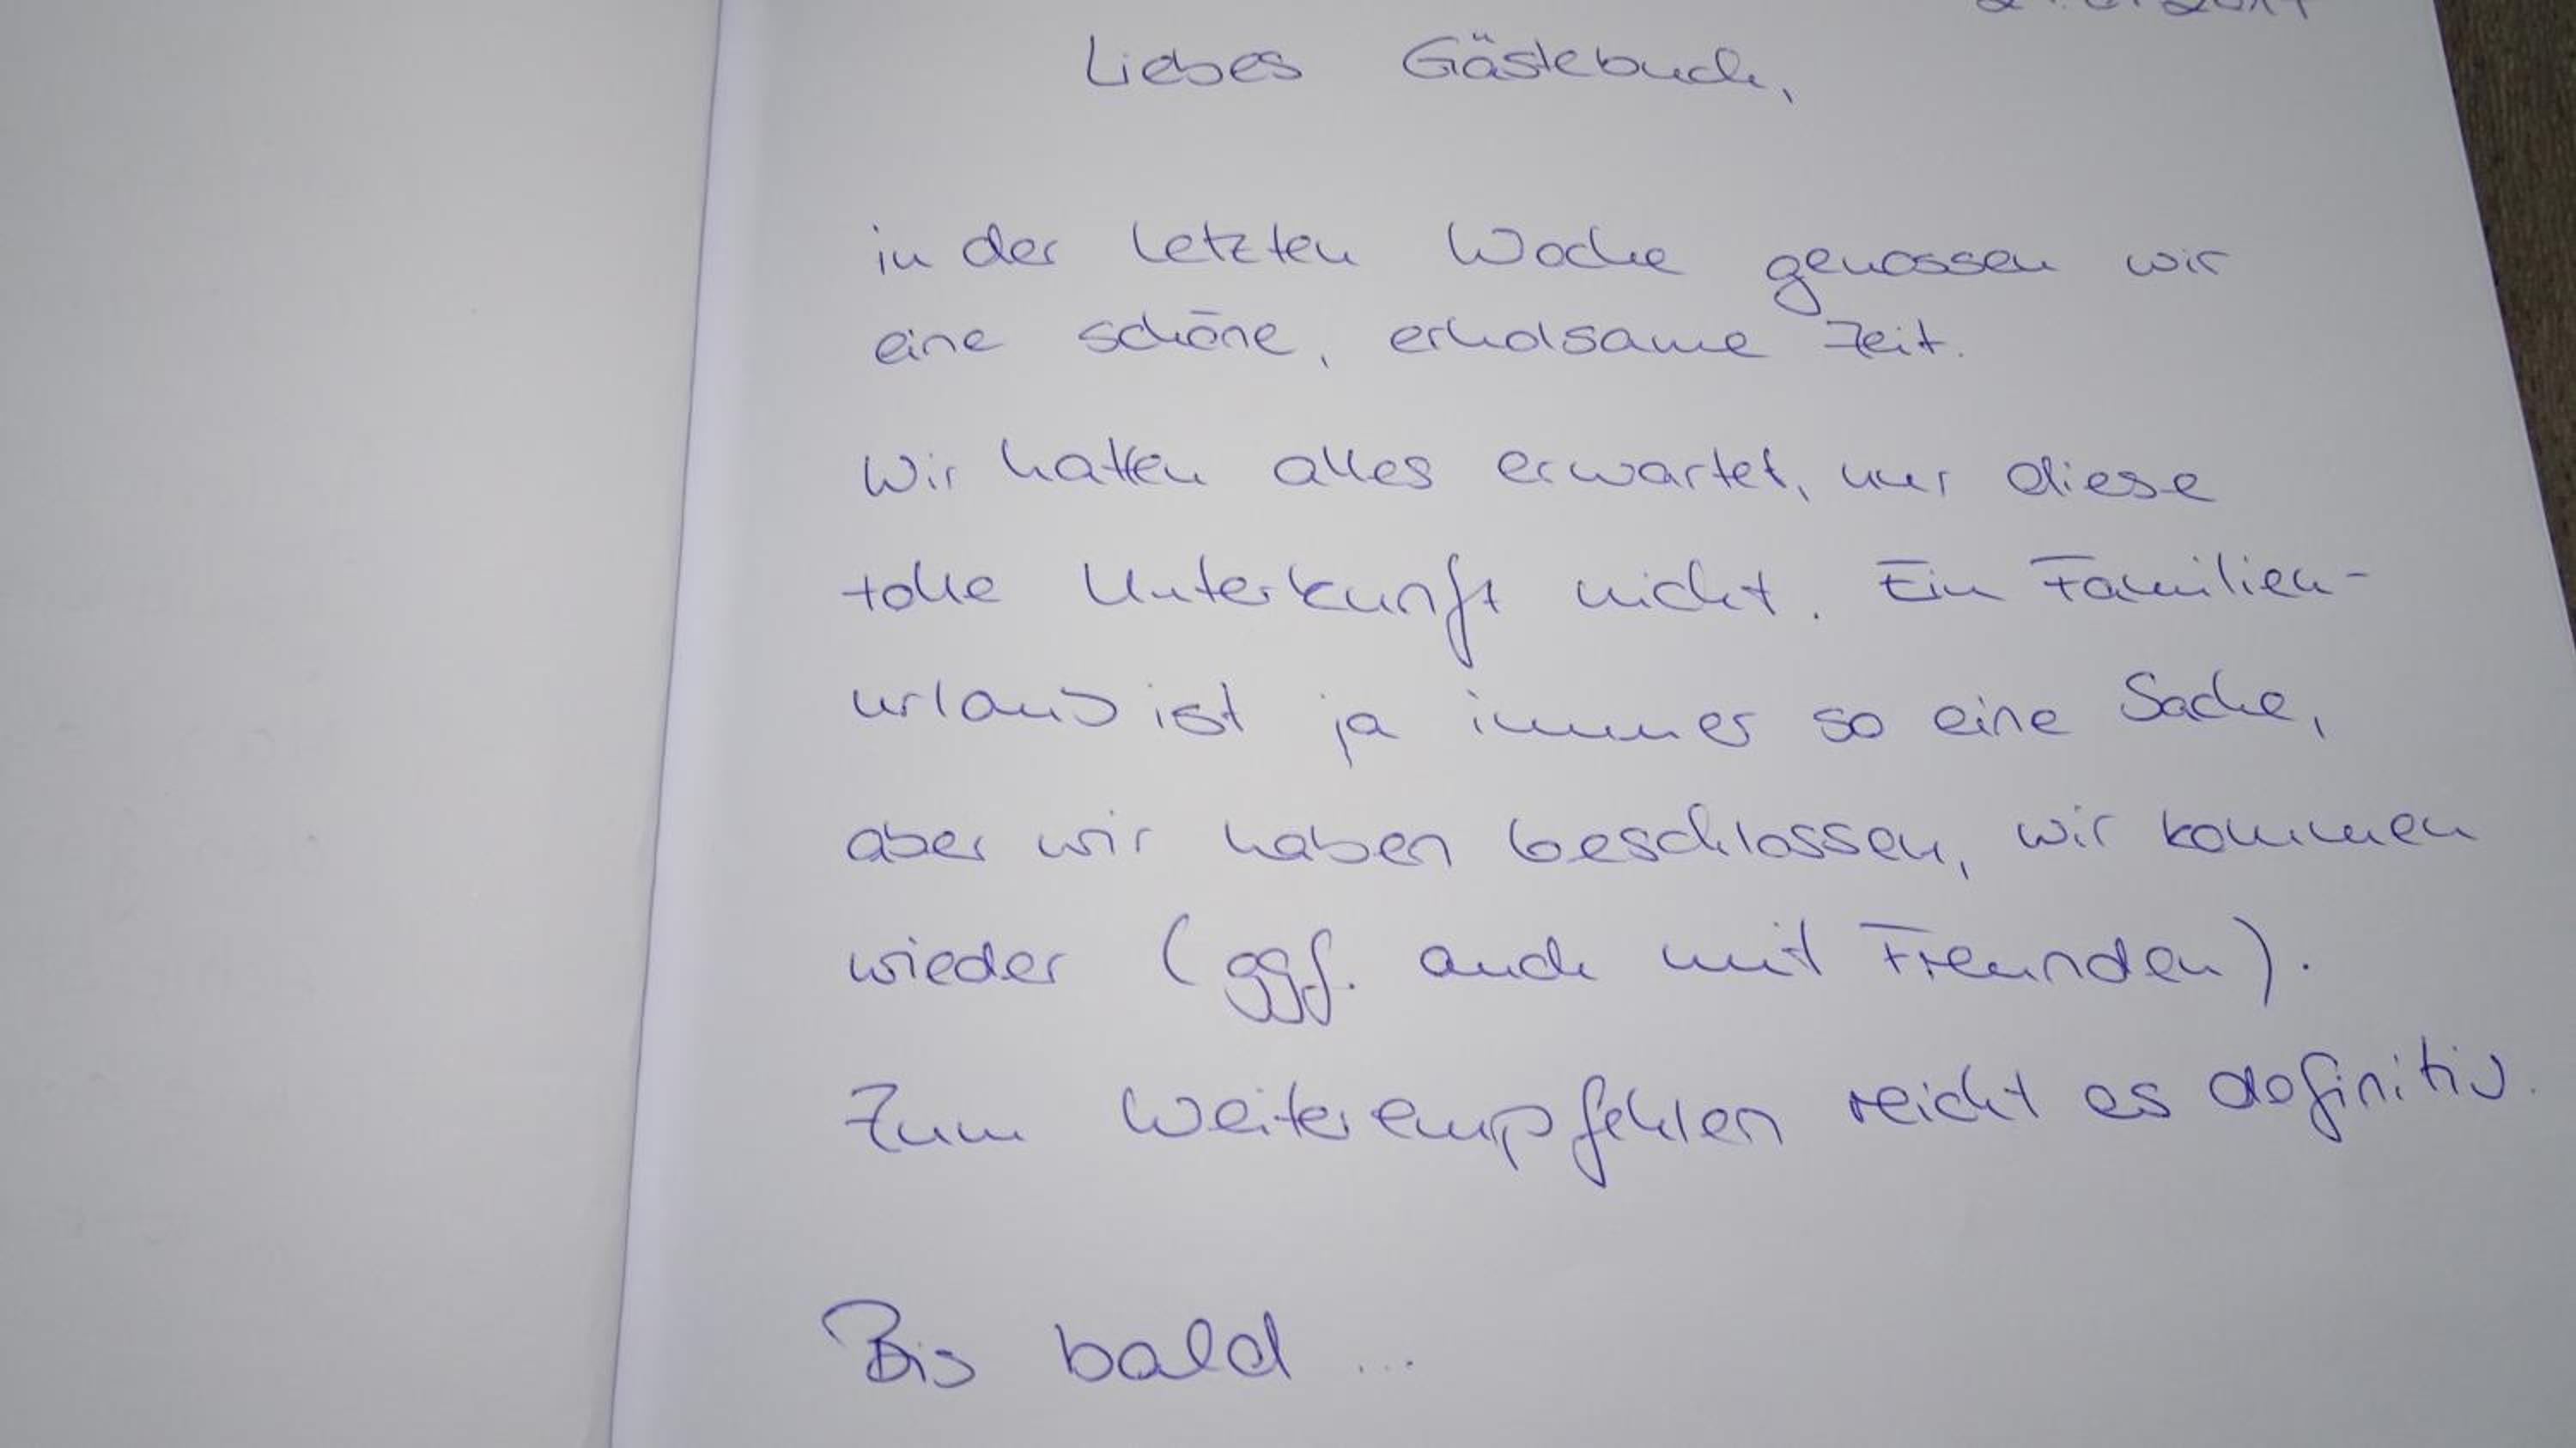 Liebes Gästebuch,
in der letzten Woche genossen wir
eine schöne, erholsame Zeit.
Wir hatten alles erwartet, nur diese
tolle Unterkunft nicht. Ein Familien-
urlaub ist ja immer so eine Sache,
aber wir haben beschlossen, wir kommen
wieder (ggf. auch mit Freunden).
Zum Weiterempfehlen reicht es definitiv.
Bis bald ...